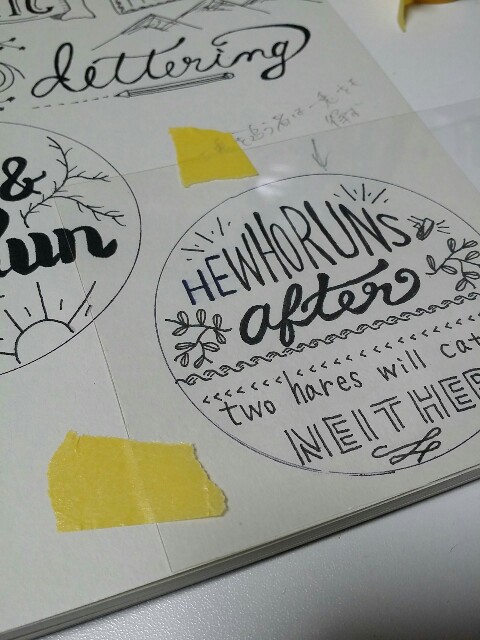 lettering
&
Run
HE WHO RUNS
after
two hares will cat
NEITHER